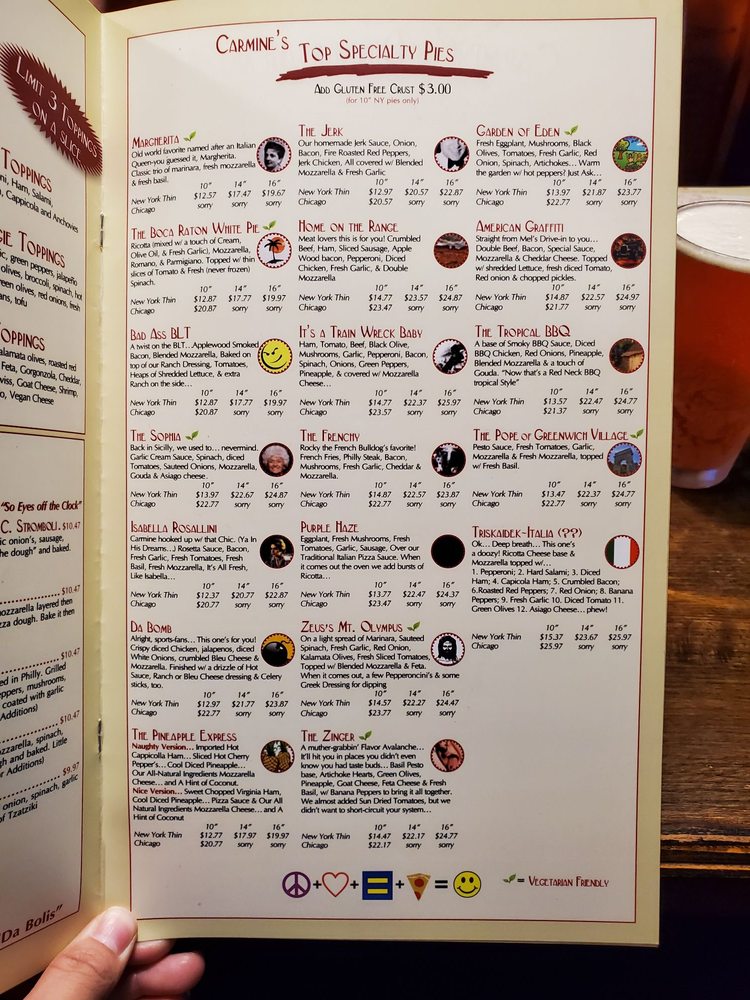 LIMIT 3 TOPPINGS
ON A SLICE
TOPPINGS
Ham, Salami,
Cappicola and Anchovies
TOPPINGS
green peppers, jalapeño
olives, broccoli, spinach, hot
green olives, red onions, fresh
tofu
TOPPINGS
kalamata olives, roasted red
Feta, Gorgonzola, Cheddar,
Goat Cheese, Shrimp,
Vegan Cheese
"So Eyes off the Clock"
C. STROMBOLI. $10.47
onion's, sausage,
the dough" and baked.
$10.47
mozzarella layered then
pizza dough. Bake it then
$10.47
in Philly. Grilled
peppers, mushrooms,
coated with garlic
Additions)
$10.47
mozzarella, spinach,
and baked. Little
Additions)
$9.97
onion, spinach, garlic
of Tzatziki
"Da Bolis"
CARMINE'S TOP SPECIALTY PIES
ADD GLUTEN FREE CRUST $3.00
(for 10" NY pies only)
MARGHERITA
Old world favorite named after an Italian
Queen-you guessed it, Margherita.
Classic trio of marinara, fresh mozzarella
& fresh basil.
10" 14" 16"
New York Thin $12.57 $17.47 $19.67
Chicago sorry sorry
THE BOCA RATON WHITE PIE
Ricotta (mixed w/ a touch of Cream,
Olive Oil, & Fresh Garlic), Mozzarella,
Romano, & Parmigiano. Topped w/ thin
slices of Tomato & Fresh (never frozen)
Spinach.
10" 14" 16"
New York Thin $12.87 $17.77 $19.97
Chicago $20.87 sorry sorry
BAD ASS BLT
A twist on the BLT...Applewood Smoked
Bacon, Blended Mozzarella, Baked on
top of our Ranch Dressing, Tomatoes,
Heaps of Shredded Lettuce, & extra
Ranch on the side...
10" 14" 16"
New York Thin $12.87 $17.77 $19.97
Chicago $20.87 sorry sorry
THE SOPHIA
Back in Sicily, we used to... nevermind.
Garlic Cream Sauce, Spinach, diced
Tomatoes, Sauteed Onions, Mozzarella,
Gouda & Asiago cheese.
10" 14" 16"
New York Thin $13.97 $22.67 $24.87
Chicago $22.77 sorry sorry
ISABELLA ROSALLINI
Carmine hooked up w/ that Chic. (Ya In
His Dreams...) Rosetta Sauce, Bacon,
Fresh Garlic, Fresh Tomatoes, Fresh
Basil, Fresh Mozzarella, It's All Fresh,
Like Isabella...
10" 14" 16"
New York Thin $12.37 $20.77 $22.87
Chicago $20.77 sorry sorry
DA BOMB
Alright, sports-fans... This one's for you!
Crispy diced Chicken, jalapenos, diced
White Onions, crumbled Bleu Cheese &
Mozzarella. Finished w/ a drizzle of Hot
Sauce, Ranch or Bleu Cheese dressing & Celery
sticks, too.
10" 14" 16"
New York Thin $12.97 $21.77 $23.87
Chicago $22.77 sorry sorry
THE PINEAPPLE EXPRESS
Naughty Version... Imported Hot
Cappicolla Ham... Sliced Hot Cherry
Pepper's... Cool Diced Pineapple...
Our All-Natural Ingredients Mozzarella
Cheese... and A Hint of Coconut.
Nice Version... Sweet Chopped Virginia Ham,
Cool Diced Pineapple... Pizza Sauce & Our All
Natural Ingredients Mozzarella Cheese... and A
Hint of Coconut
10" 14" 16"
New York Thin $12.77 $17.97 $19.97
Chicago $20.77 sorry sorry
THE JERK
Our homemade Jerk Sauce, Onion,
Bacon, Fire Roasted Red Peppers,
Jerk Chicken, All covered w/ Blended
Mozzarella & Fresh Garlic
10" 14" 16"
New York Thin $12.97 $20.57 $22.87
Chicago $20.57 sorry sorry
HOME ON THE RANGE
Meat lovers this is for you! Crumbled
Beef, Ham, Sliced Sausage, Apple
Wood bacon, Pepperoni, Diced
Chicken, Fresh Garlic, & Double
Mozzarella
10" 14" 16"
New York Thin $14.77 $23.57 $24.87
Chicago $23.77 sorry sorry
IT'S A TRAIN WRECK BABY
Ham, Tomato, Beef, Black Olive,
Mushrooms, Garlic, Pepperoni, Bacon,
Spinach, Onions, Green Peppers,
Pineapple, & covered w/ Mozzarella
Cheese...
10" 14" 16"
New York Thin $14.77 $22.37 $25.97
Chicago $23.57 sorry sorry
THE FRENCHY
Rocky the French Bulldog's favorite!
French Fries, Philly Steak, Bacon,
Mushrooms, Fresh Garlic, Cheddar &
Mozzarella.
10" 14" 16"
New York Thin $14.87 $22.57 $23.87
Chicago $22.57 sorry sorry
PURPLE HAZE
Eggplant, Fresh Mushrooms, Fresh
Tomatoes, Garlic, Sausage, Over our
Traditional Italian Pizza Sauce. When
it comes out the oven we add bursts of
Ricotta...
10" 14" 16"
New York Thin $13.77 $22.47 $24.37
Chicago $23.47 sorry sorry
ZEUS'S MT. OLYMPUS
On a light spread of Marinara, Sauteed
Spinach, Fresh Garlic, Red Onion,
Kalamata Olives, Fresh Sliced Tomatoes,
Topped w/ Blended Mozzarella & Feta.
When it comes out, a few Pepperoncini's & some
Greek Dressing for dipping
10" 14" 16"
New York Thin $14.57 $22.27 $24.47
Chicago $23.77 sorry sorry
THE ZINGER
A muther-grabbin' Flavor Avalanche...
It'll hit you in places you didn't even
know you had taste buds... Basil Pesto
base, Artichoke Hearts, Green Olives,
Pineapple, Goat Cheese, Feta Cheese & Fresh
Basil, w/ Banana Peppers to bring it all together.
We almost added Sun Dried Tomatoes, but we
didn't want to short-circuit your system...
10" 14" 16"
New York Thin $14.47 $22.17 $24.77
Chicago $22.17 sorry sorry
GARDEN OF EDEN
Fresh Eggplant, Mushrooms, Black
Olives, Tomatoes, Fresh Garlic, Red
Onion, Spinach, Artichokes... Warm
the garden w/ hot peppers! Just Ask...
10" 14" 16"
New York Thin $13.97 $21.87 $23.77
Chicago $22.77 sorry sorry
AMERICAN GRAFFITI
Straight from Mel's Drive-in to you...
Double Beef, Bacon, Special Sauce,
Mozzarella & Cheddar Cheese. Topped
w/ shredded Lettuce, fresh diced Tomato,
Red onion & chopped pickles.
10" 14" 16"
New York Thin $14.87 $22.57 $24.97
Chicago $21.77 sorry sorry
THE TROPICAL BBQ
A base of Smoky BBQ Sauce, Diced
BBQ Chicken, Red Onions, Pineapple,
Blended Mozzarella & a touch of
Gouda. "Now that's a Red Neck BBQ
tropical Style"
10" 14" 16"
New York Thin $13.57 $22.47 $24.77
Chicago $21.37 sorry sorry
THE POPE OF GREENWICH VILLAGE
Pesto Sauce, Fresh Tomatoes, Garlic,
Mozzarella & Fresh Mozzarella, topped
w/ Fresh Basil.
10" 14" 16"
New York Thin $13.47 $22.37 $24.77
Chicago $22.77 sorry sorry
TRISKAIDEK-ITALIA (??)
Ok... Deep breath... This one's
a doozy! Ricotta Cheese base &
Mozzarella topped w/...
1. Pepperoni; 2. Hard Salami; 3. Diced
Ham; 4. Capicola Ham; 5. Crumbled Bacon;
6.Roasted Red Peppers; 7. Red Onion; 8. Banana
Peppers; 9. Fresh Garlic 10. Diced Tomato 11.
Green Olives 12. Asiago Cheese... phew!
10" 14" 16"
New York Thin $15.37 $23.67 $25.97
Chicago $25.97 sorry sorry
= VEGETARIAN FRIENDLY